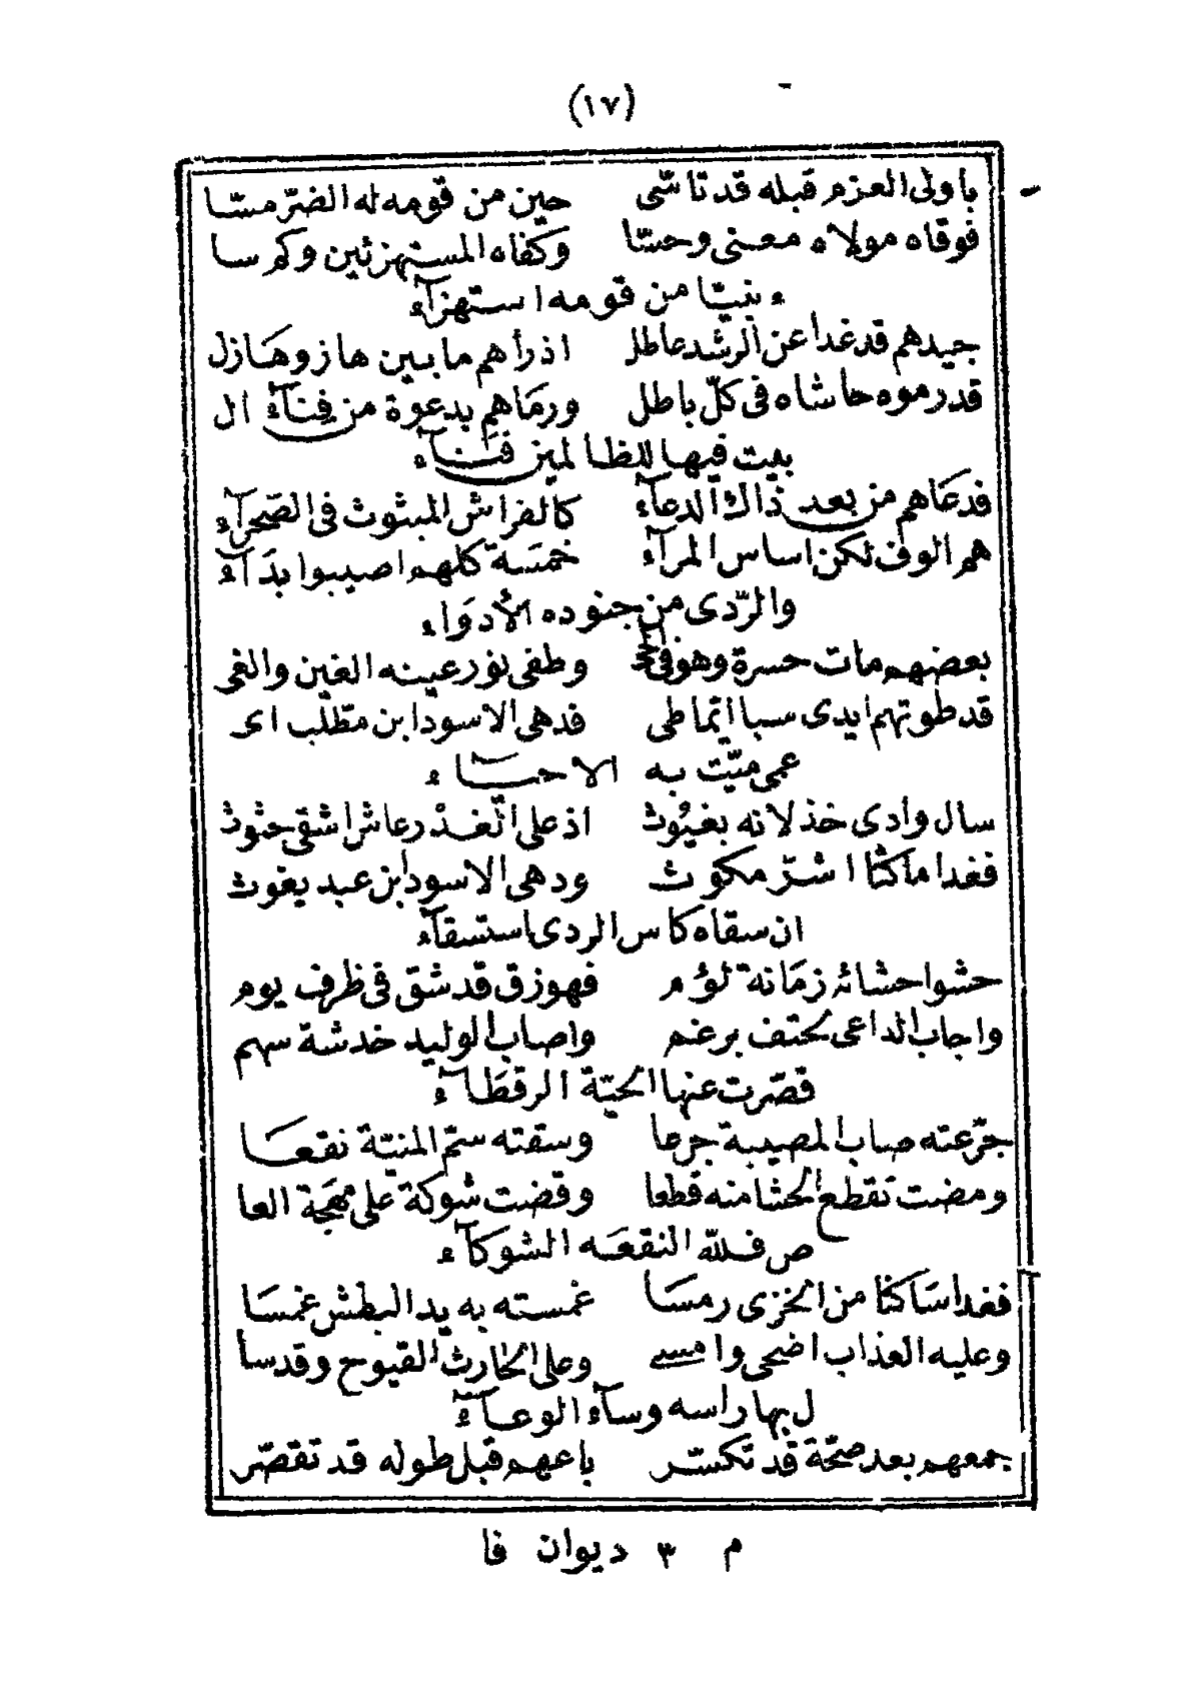 (١٧)
باولى العزم قبله قد تاسّى حين من قومه له الضرّ مسّا
فوقاه مولاه معنى وحسّا وكفاه المستهزئين وكم سا
ء نبيّا من قومه استهزآء
جيدهم قد غدا عن الرشد عاطل اذ رأهم ما بين هاز وهازل
قد رموه حاشاه فى كلّ باطل ورماهم بدعوة من فِنآء ال
بيت فيها للظالمين فَنآء
فدعاهم من بعد ذاك الدعآء كالفراش المبثوث فى الصّحرآء
هم الوف لكن اساس المرآء خمسة كلهم اصيبوا بدآء
والرّدى من جنوده الأدواء
بعضهم مات حسرة وهو فى وطفى نور عينه الغين والغى
قد طوتهم ايدى سبا ايّما طى فدهى الاسود ابن مطّلب اى
عمى ميّت به الاحيآء
سال وادى خذلانه بغيُوث اذ على الغدْر عاش اشقى حثوث
فغدا ماكثا اشرّ مكوث ودهى الاسود ابن عبد يغوث
ان سقاه كاس الردى استسقآء
حشوا حشائه زمانة لؤم فهو زق قد شق فى ظرف يوم
واجاب الداعى بحتف برغم واصاب الوليد خدشة سهم
قصّرت عنها الحيّة الرقطآء
جرّعته صاب المصيبة جرعا وسقته سمّ المنيّة نقعا
ومضت تقطع الحشا منه قطعا وقضت شوكة على مهجة العا
ص فلله النقعه الشوكآء
فغدا ساكنا من الخزى رمسا غمسته به يد البطش غمسا
وعليه العذاب اضحى وامسى وعلى الحارث القيوح وقد سا
ل بها راسه وسآء الوعآء
جمعهم بعد صحّة قد تكسّر باعهم قبل طوله قد تقصّر
م ٣ ديوان فا